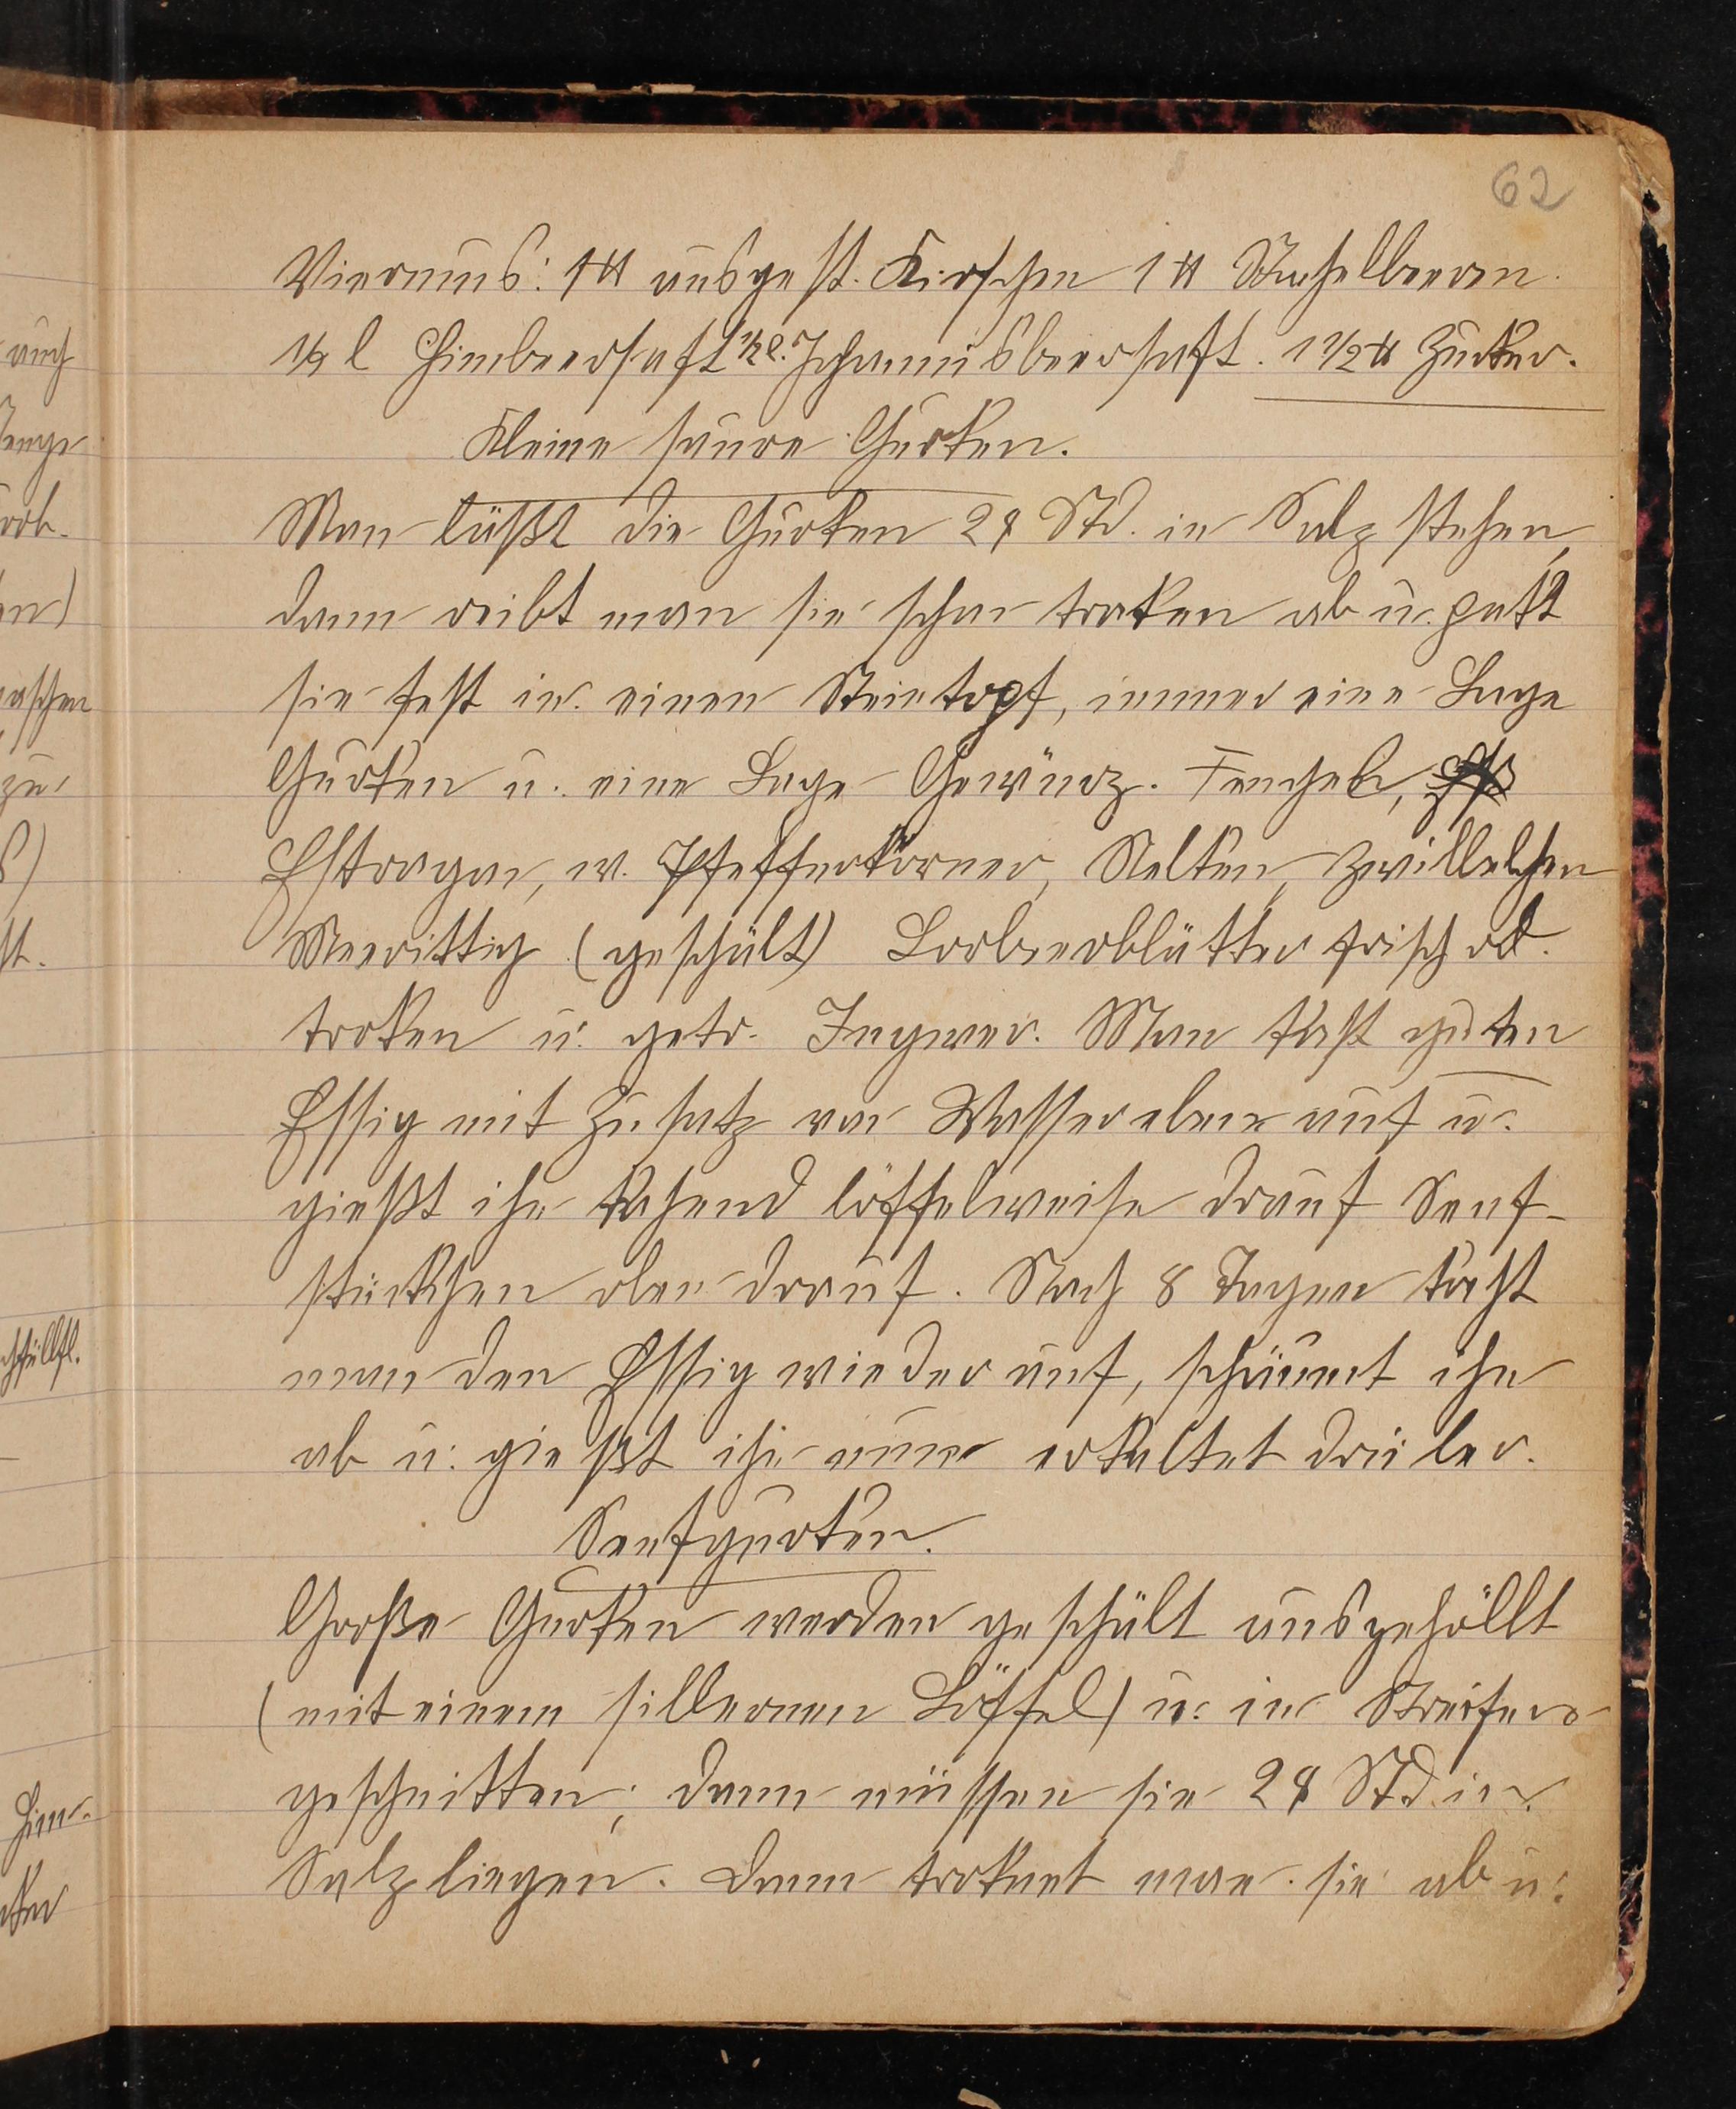 62
Viermus: 1 ℔ ausgest. Kirschen 1 ℔ Stachelbeeren
1/2 l Himbeersaft 1/2 l. Johannisbeersaft. 1 1/2 ℔ Zucker.
Kleine saure Gurken.
Man läßt die Gurken 24 Std. in Salz stehen,
dann reibt man sie schön troken ab u. pakt
sie fest in einen Steintopf, immer eine Lage
Gurken u. eine Lage Gewürz. Fenchel,
Estragon, w. Pfefferkörner, Nelken, Zwiebelchen
Meerittig (geschält) Lorbeerblätter frisch od.
troken u. getr. Ingwer. Man kocht guten
Essig mit Zusatz von Wasser eben auf u.
gießt ihn kochend löffelweise drauf Senf-
oben drauf. Nach 8 Tagen kocht
man den Essig wieder auf, schäumt ihn
ab u. gießt ihn nun erkaltet drüber.
Senfgurken.
Große Gurken werden geschält ausgehöllt
(mit einem silbernen Löffel) u. in Streifen
geschnitten; dann müssen sie 24 Std in
Salz liegen. Dann troknet man sie ab u.